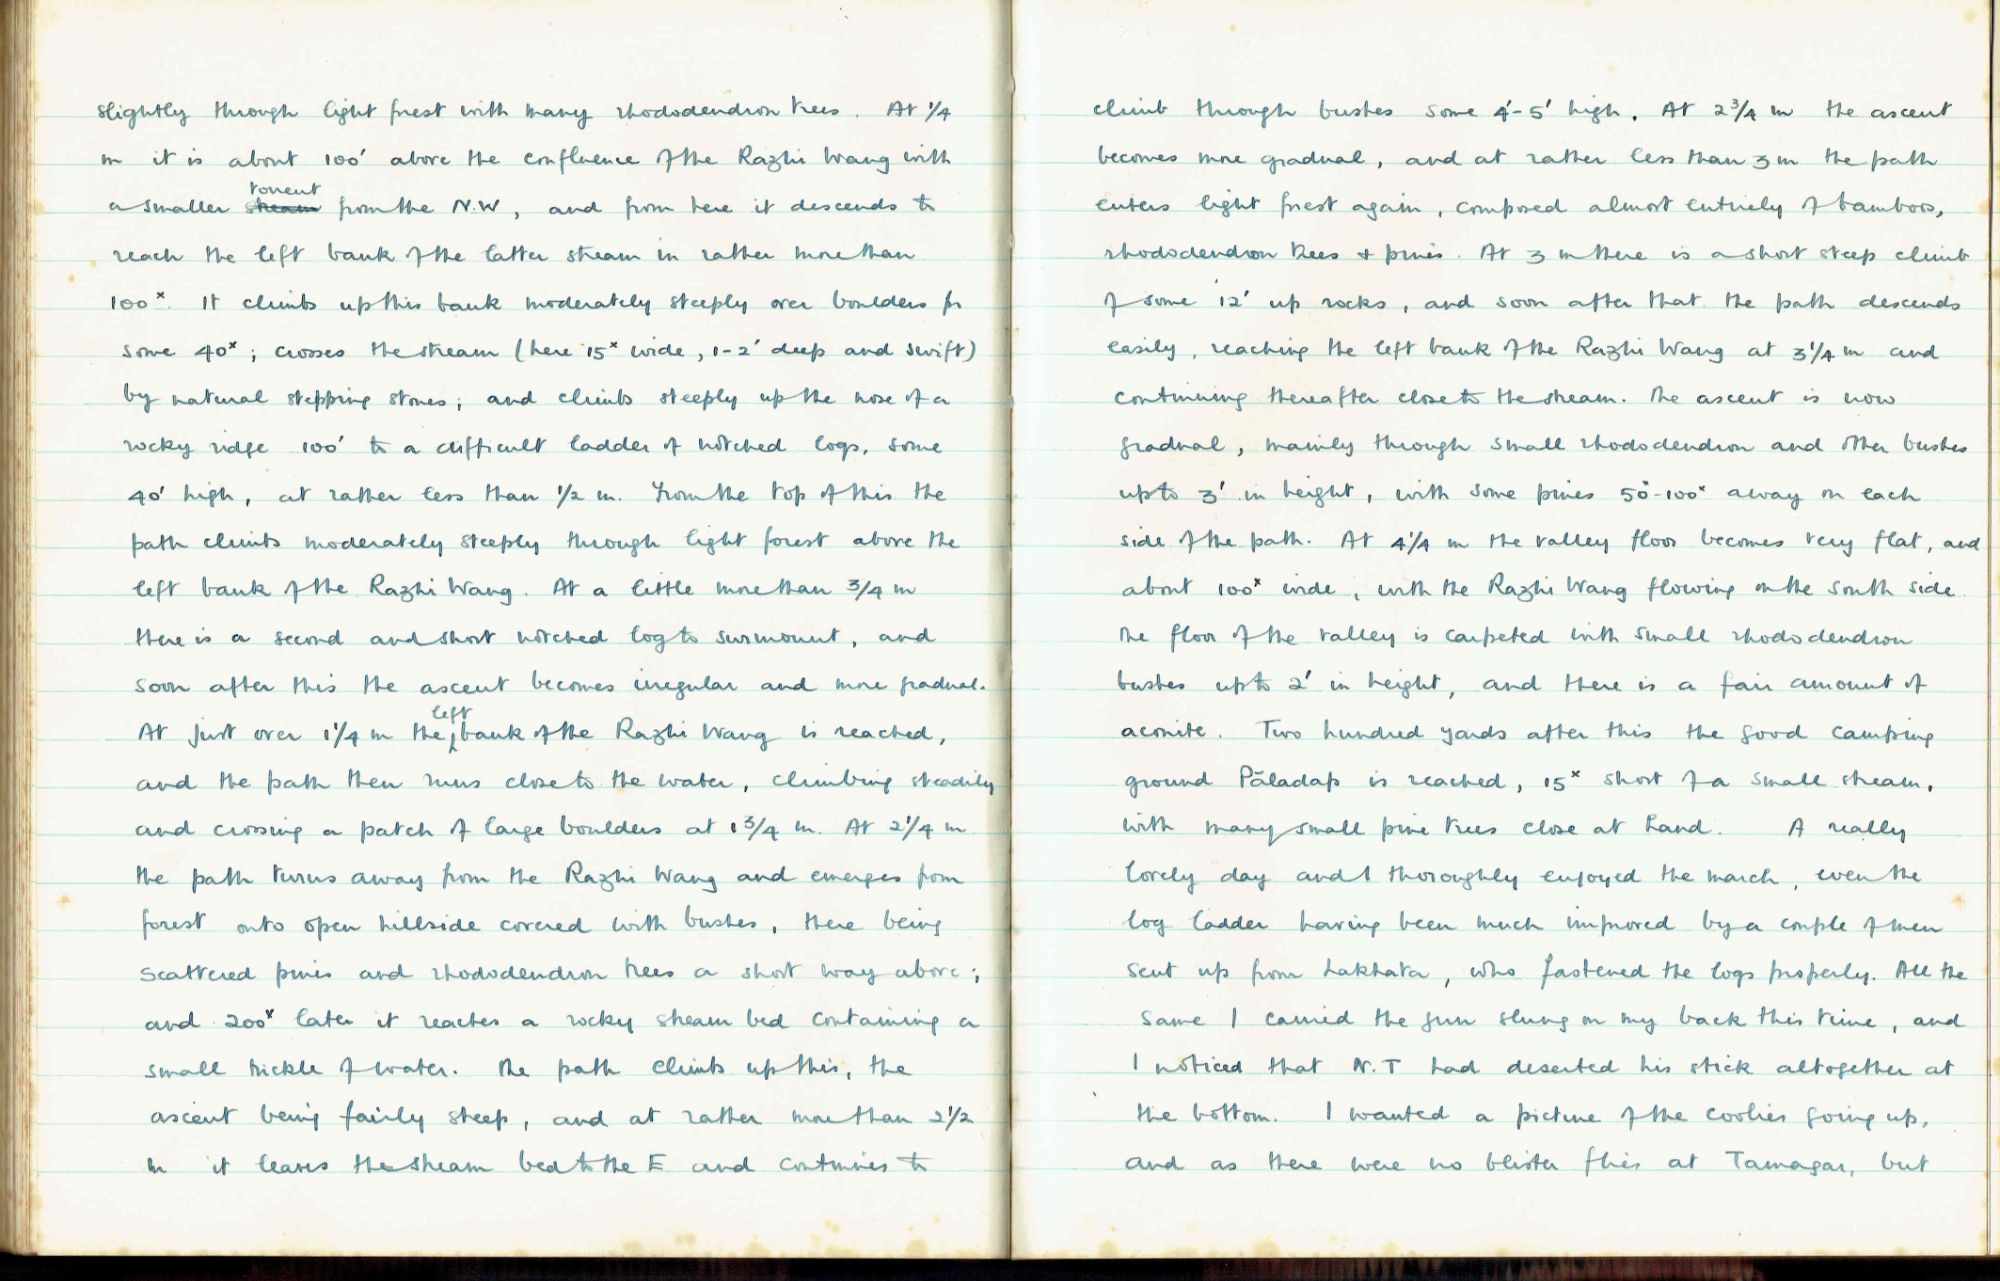 slightly through light forest with many rhododendron trees. At 1/4
m it is about 100' above the confluence of the Razhi Wang with
a smaller stream torrent from the N.W, and from here it descends to
reach the left bank of the latter stream in rather more than
100ˣ. It climbs up this bank moderately steeply over boulders for
some 40ˣ; crosses the stream (here 15ˣ wide, 1-2' deep and swift)
by natural stepping stones; and climbs steeply up the nose of a
rocky ridge 100' to a difficult ladder of notched logs, some
40' high, at rather less than 1/2 m. From the top of this the
path climbs moderately steeply through light forest above the
left bank of the Razhi Wang. At a little more than 3/4 m
there is a second and short notched log to surmount, and
soon after this the ascent becomes irregular and more gradual.
At just over 1 1/4 m the left bank of the Razhi Wang is reached,
and the path then runs close to the water, climbing steadily
and crossing a patch of large boulders at 1 3/4 m. At 2 1/4 m
the path turns away from the Razhi Wang and emerges from
forest onto open hillside covered with bushes, there being
scattered pines and rhododendron trees a short way above;
and 200ˣ later it reaches a rocky stream bed containing a
small trickle of water. The path climbs up this, the
ascent being fairly steep, and at rather more than 2 1/2
m it leaves the stream bed to the E and continues to
climb through bushes some 4'-5' high. At 2 3/4 m the ascent
becomes more gradual, and at rather less than 3 m the path
enters light forest again, composed almost entirely of bamboos,
rhododendron trees + pines. At 3 m there is a short steep climb
of some 12' up rocks, and soon after that the path descends
easily, reaching the left bank of the Razhi Wang at 3 1/4 m and
continuing thereafter close to the stream. The ascent is now
gradual, mainly through small rhododendron and other bushes
up to 3' in height, with some pines 50ˣ-100ˣ away on each
side of the path. At 4 1/4 m the valley floor becomes very flat, and
about 100ˣ wide, with the Razhi Wang flowing on the South side.
The floor of the valley is carpeted with small rhododendron
bushes up to 2' in height, and there is a fair amount of
aconite. Two hundred yards after this the good camping
ground Pāladap is reached, 15ˣ short of a small stream,
with many small pine trees close at hand. A really
lovely day and I thoroughly enjoyed the march, even the
log ladder having been much improved by a couple of men
sent up from Lakhata, who fastened the logs properly. All the
same I carried the gun slung on my back this time, and
I noticed that N.T had deserted his stick altogether at
the bottom. I wanted a picture of the coolies going up,
and as there were no blister flies at Tamagar, but